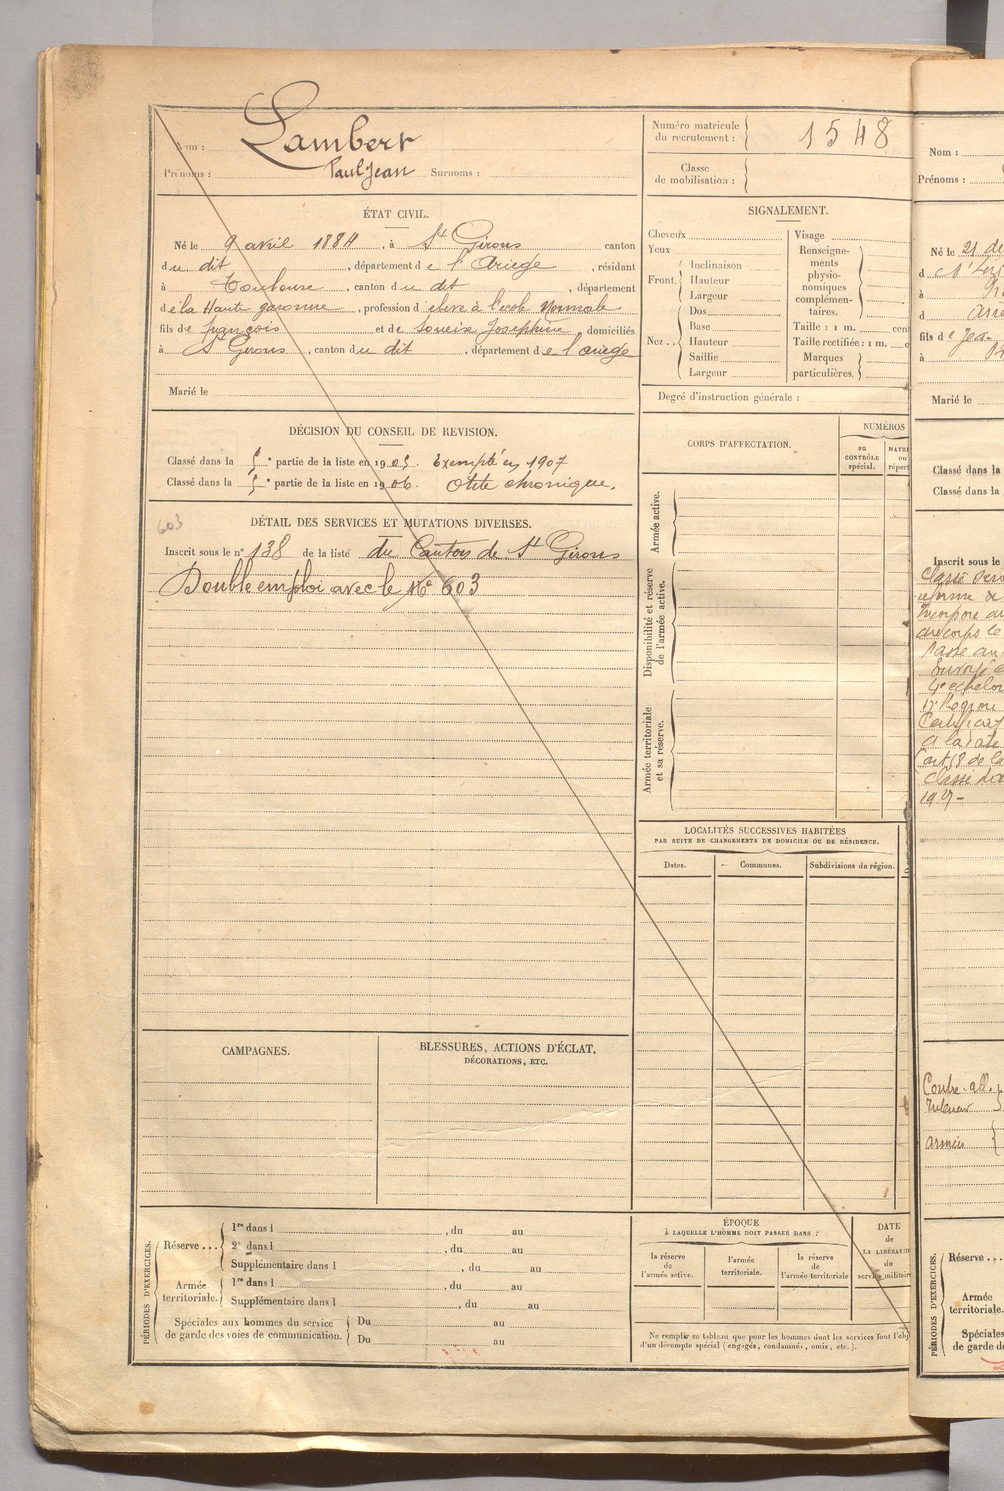 Nom : Lambert
Prénoms : Paul Jean Surnoms :
Numéro matricule du recrutement : 1548
Classe de mobilisation :
ÉTAT CIVIL.
Né le 9 avril 1884, à St Girons canton
du dit, département de l'Ariege, résidant
à Toulouse, canton du dit, département
de la Haute garonne, profession d'eleve à l'ecole Normale
fils de françois et de Soueix Josephine, domiciliés
à St Girons, canton du dit, département de l'ariege
Marié le
DÉCISION DU CONSEIL DE REVISION.
Classé dans la 5e partie de la liste en 1905. Exempté en 1907
Classé dans la 5e partie de la liste en 1906. Otite chronique.
603
DÉTAIL DES SERVICES ET MUTATIONS DIVERSES.
Inscrit sous le n° 138 de la liste du Canton de St Girons
Double emploi avec le No 603
CAMPAGNES.
BLESSURES, ACTIONS D'ÉCLAT,
DÉCORATIONS, ETC.
PÉRIODES D'EXERCICES.
Réserve...
1re dans l , du au
2e dans l , du au
Supplémentaire dans l , du au
Armée territoriale.
1re dans l , du au
Supplémentaire dans l , du au
Spéciales aux hommes du service
de garde des voies de communication.
Du au
Du au
SIGNALEMENT.
Cheveux
Yeux
Front.
Inclinaison
Hauteur
Largeur
Nez..
Dos
Base
Hauteur
Saillie
Largeur
Visage
Renseigne-
ments
physio-
nomiques
complémen-
taires.
Taille : 1 m. cent
Taille rectifiée : 1 m. c
Marques
particulières.
Degré d'instruction générale :
CORPS D'AFFECTATION.
NUMÉROS
au
CONTRÔLE
spécial.
MATRI
ou
répert
Armée active.
Disponibilité et réserve
de l'armée active.
Armée territoriale
et sa réserve.
LOCALITÉS SUCCESSIVES HABITÉES
PAR SUITE DE CHANGEMENTS DE DOMICILE OU DE RÉSIDENCE.
Dates.
Communes.
Subdivisions de région.
ÉPOQUE
À LAQUELLE L'HOMME DOIT PASSER DANS :
la réserve
de
l'armée active.
l'armée
territoriale.
la réserve
de
l'armée territoriale
DATE
de
LA LIBÉRATIO
du
service militaire
Ne remplir ce tableau que pour les hommes dont les services font l'obj
d'un décompte spécial (engagés, condamnés, omis, etc.).
Nom :
Prénoms :
Né le 21 de
d
à
d
fils de Jean
à
Marié le
Classé dans la
Classé dans la
Inscrit sous le
Classé
Incorporé
du corps le
Passé au
4e echelon
17e Région
Art 18 de la
Classe
1927 -
Contre all.
Intérieur
Armées
PÉRIODES D'EXERCICES.
Réserve...
Armée
territoriale.
Spéciales
de garde de